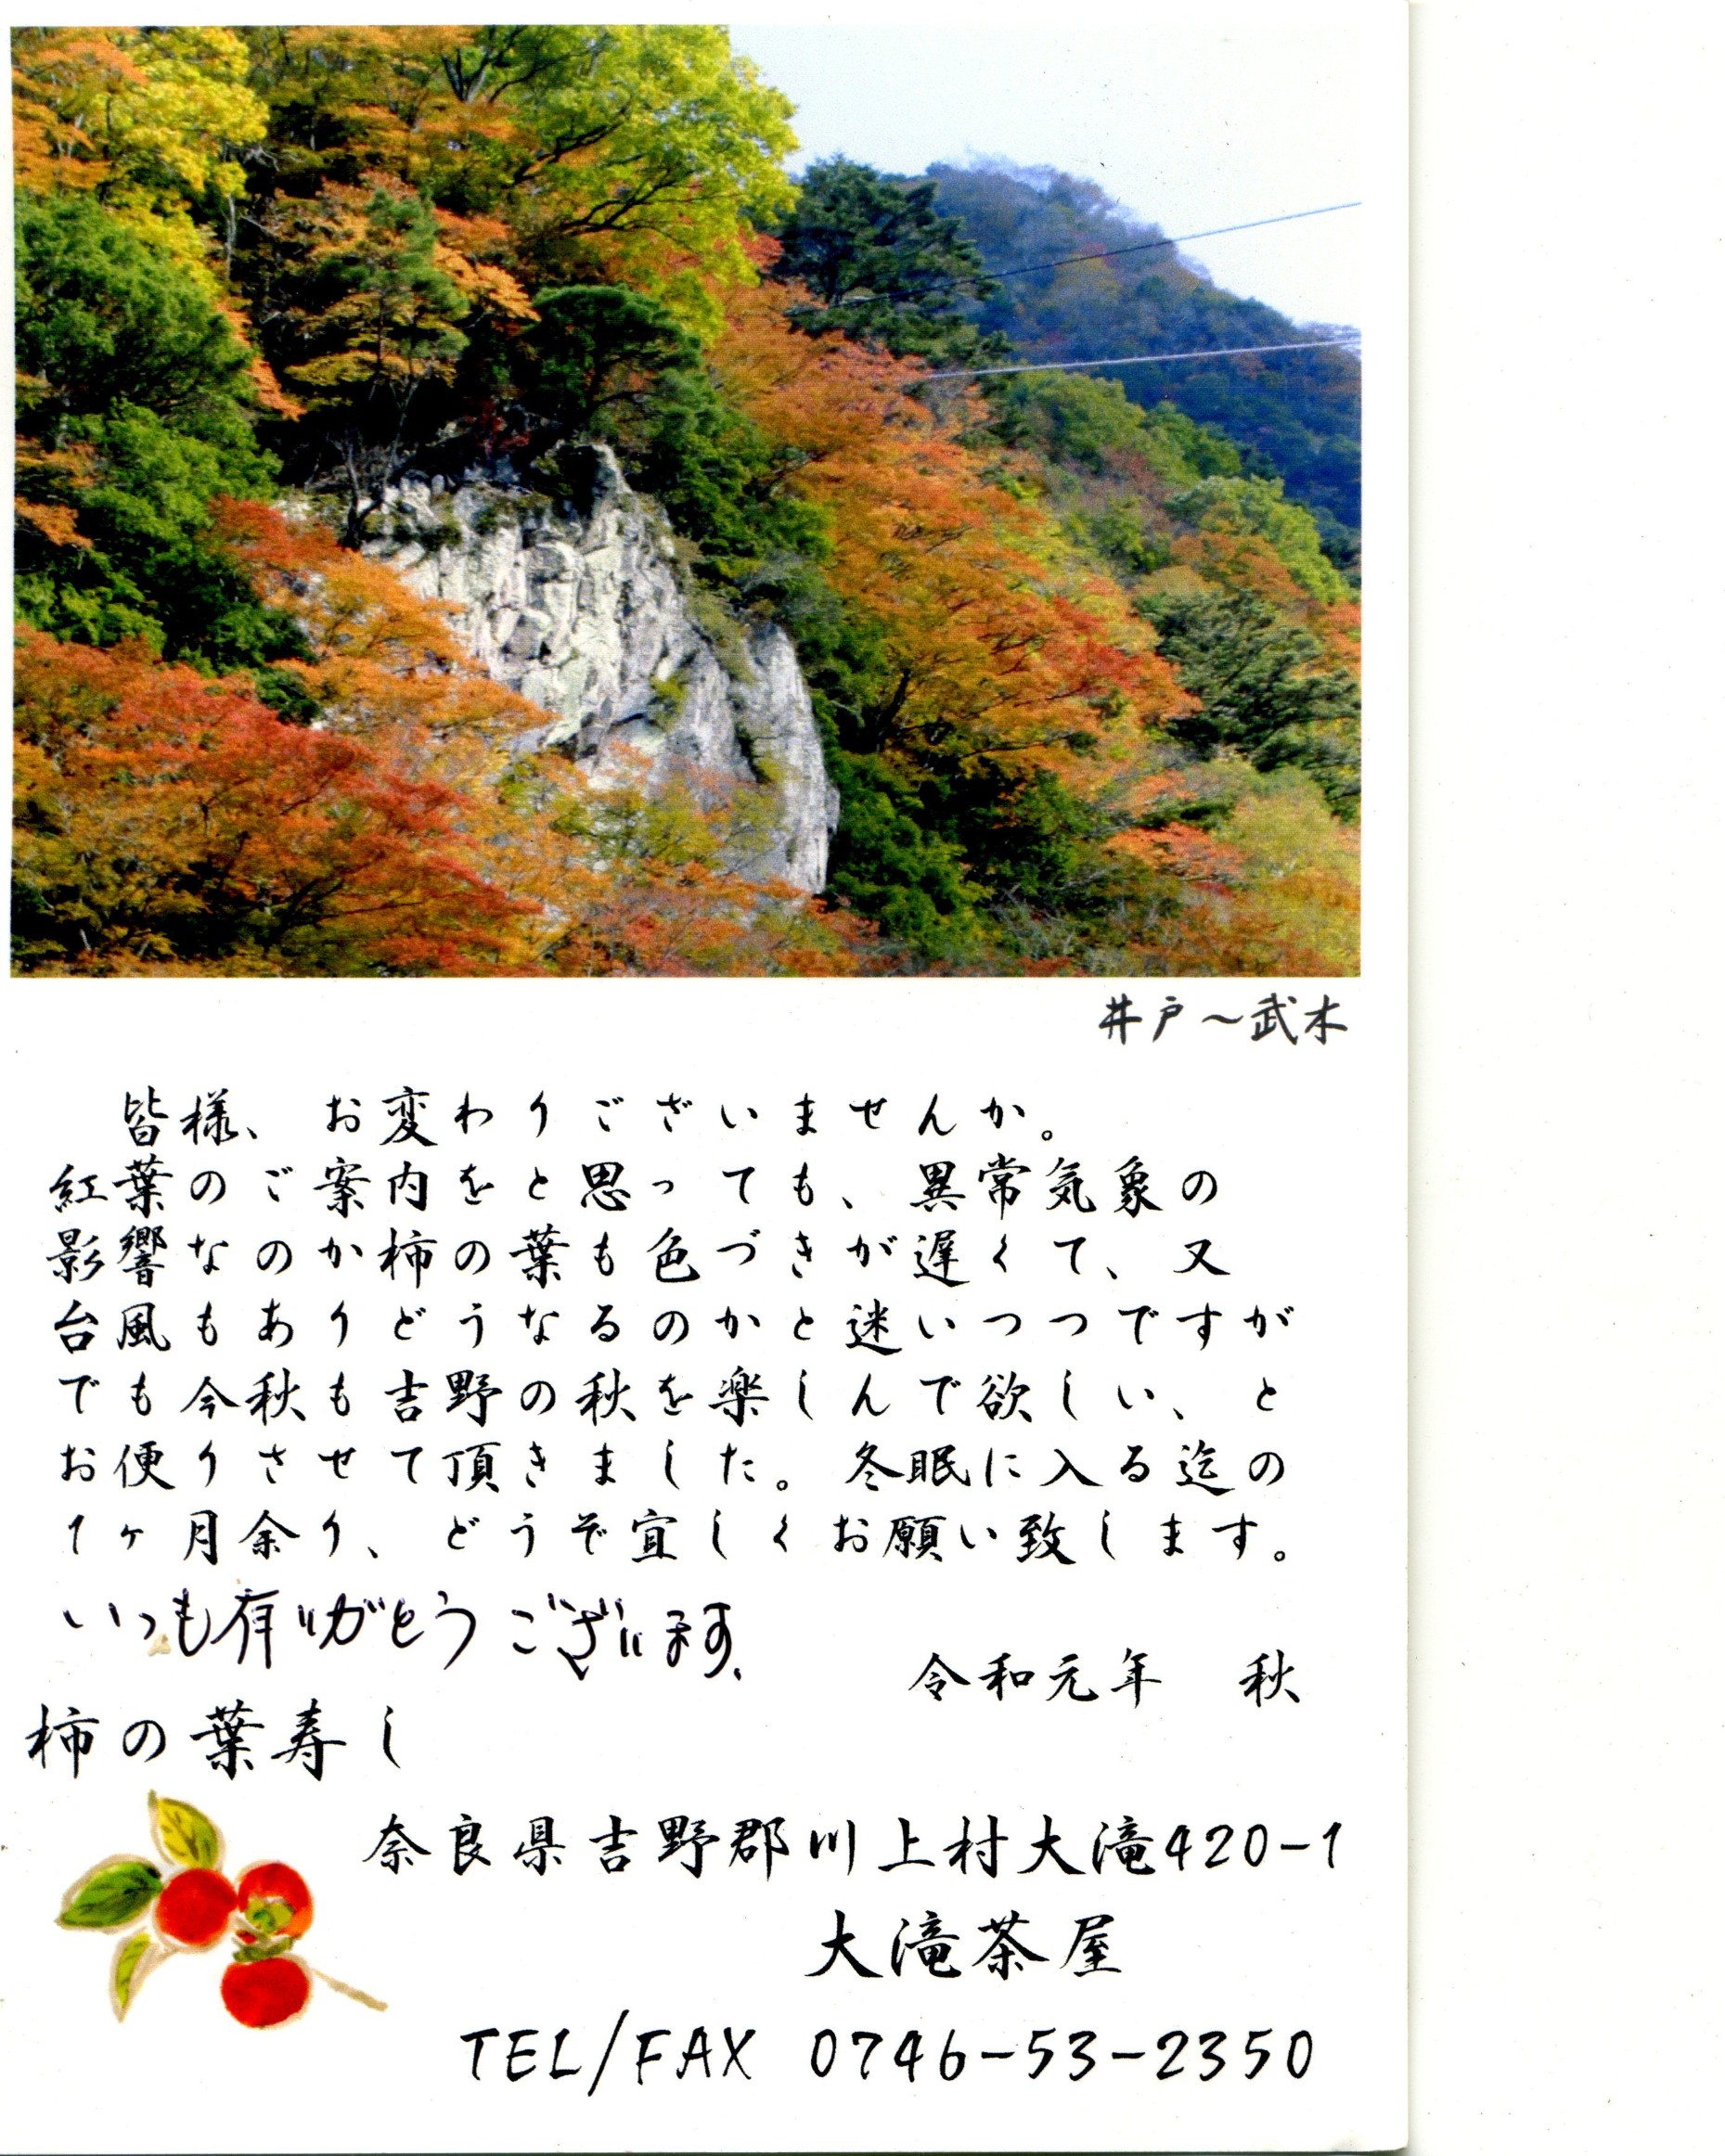 井戸～武木
皆様、お変わりございませんか。
紅葉のご案内をと思っても、異常気象の
影響なのか柿の葉も色づきが遅くて、又
台風もありどうなるのかと迷いつつですが
でも今秋も吉野の秋を楽しんで欲しい、と
お便りさせて頂きました。冬眠に入る迄の
1ヶ月余り、どうぞ宜しくお願い致します。
いつも有りがとうございます。
令和元年　秋
柿の葉寿し
奈良県吉野郡川上村大滝420-1
大滝茶屋
TEL/FAX 0746-53-2350